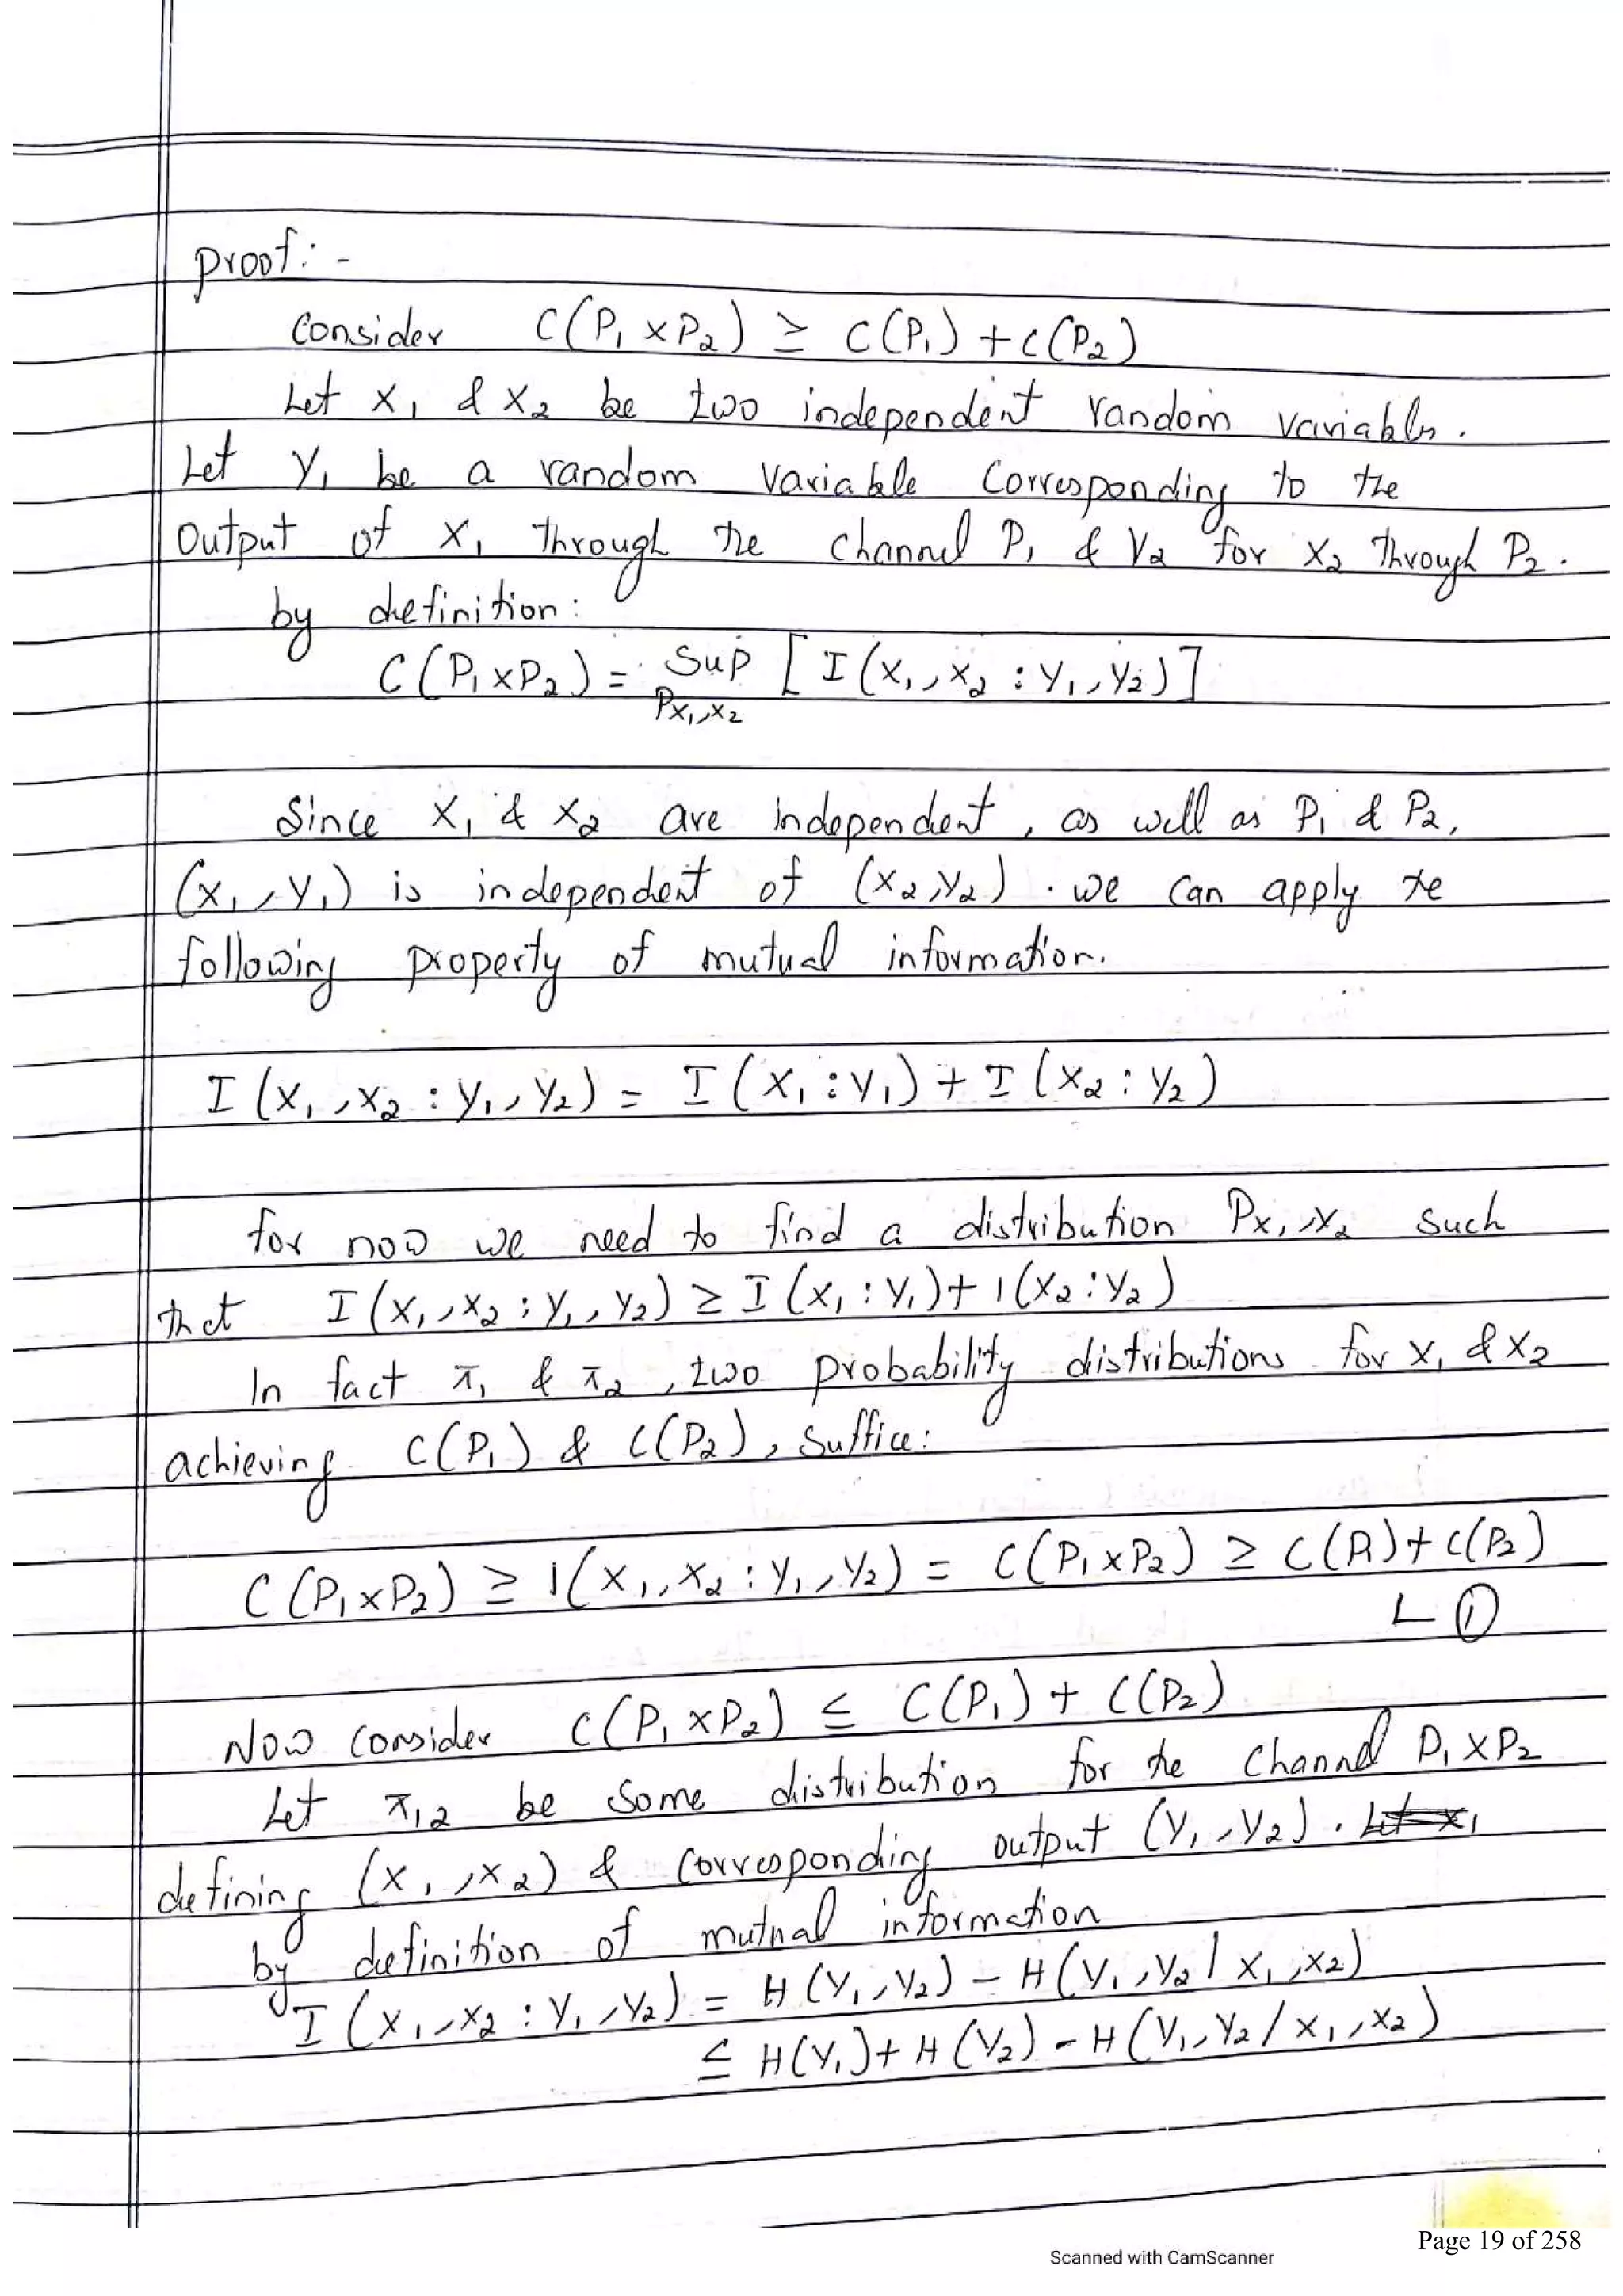 Proof: -
Consider C(P₁ × P₂) ≥ C(P₁) + C(P₂)
Let X₁ & X₂ be two independent random variables.
Let Y₁ be a random variable Corresponding to the
Output of X₁ through the channel P₁ & Y₂ for X₂ through P₂.
by definition:
C(P₁ × P₂) = Sup [I(X₁, X₂ : Y₁, Y₂)]
Px₁,x₂
Since X₁ & X₂ are independent, as well as P₁ & P₂,
(X₁, Y₁) is independent of (X₂, Y₂). we can apply the
following property of mutual information.
I(X₁, X₂ : Y₁, Y₂) = I(X₁ : Y₁) + I(X₂ : Y₂)
for now we need to find a distribution Px₁,x₂ such
that I(X₁, X₂ : Y₁, Y₂) ≥ I(X₁ : Y₁) + I(X₂ : Y₂)
In fact π₁ & π₂, two probability distributions for X₁ & X₂
achieving C(P₁) & C(P₂), Suffice:
C(P₁ × P₂) ≥ I(X₁, X₂ : Y₁, Y₂) = C(P₁ × P₂) ≥ C(P₁) + C(P₂)
∟ ①
Now Consider C(P₁ × P₂) ≤ C(P₁) + C(P₂)
Let π₁₂ be Some distribution for the Channel P₁ × P₂
defining (X₁, X₂) & Corresponding output (Y₁, Y₂). Let X₁
by definition of mutual information
I(X₁, X₂ : Y₁, Y₂) = H(Y₁, Y₂) - H(Y₁, Y₂ / X₁, X₂)
≤ H(Y₁) + H(Y₂) - H(Y₁, Y₂ / X₁, X₂)
Page 19 of 258
Scanned with CamScanner